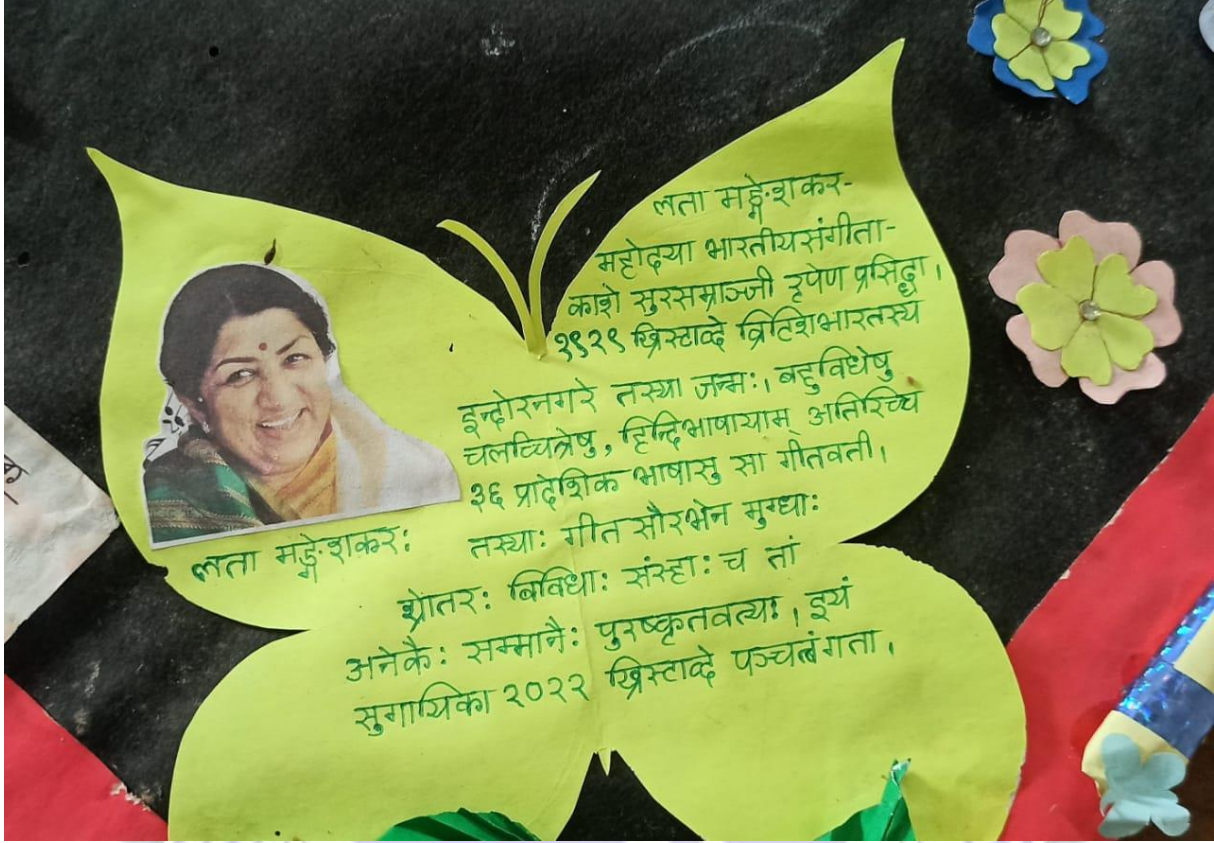 लता मङ्गेशकर-
महोदया भारतीयसंगीता-
काशे सुरसम्राज्जी रृपेण प्रसिद्धा।
१९२९ ख्रिस्टाब्दे ब्रिटिशभारतस्य
इन्दोरनगरे तस्या जन्मः। बहुविधेषु
चलच्चित्रेषु, हिन्दिभाषायाम् अतिरिच्य
३६ प्रादेशिक भाषासु सा गीतवती।
लता मङ्गेशकरः
तस्याः गीत सौरभेन मुग्धाः
श्रोतरः बिबिधाः संस्हाः च तां
अनेकैः सम्मानैः पुरष्कृतवत्यः। इयं
सुगायिका २०२२ ख्रिस्टाब्दे पञ्चत्वंगता।